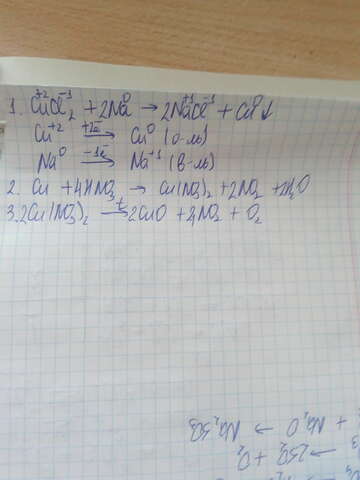 1. Cu⁺²Cl⁻¹₂ + 2Na⁰ → 2Na⁺¹Cl⁻¹ + Cu⁰↓
Cu⁺² +2e̅→ Cu⁰ (о-ль)
Na⁰ –1e̅→ Na⁺¹ (в-ль)
2. Cu + 4HNO₃ → Cu(NO₃)₂ + 2NO₂ + 2H₂O
3. 2Cu(NO₃)₂ t→ 2CuO + 4NO₂ + O₂
+ Na₂O → Na₂SO₃
→ 2SO₂ + O₂